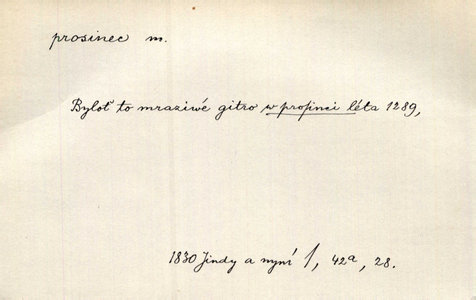 prosinec m.
Byloť to mraziwé gitro w prosinci léta 1289,
1830 Jindy a nyní /, 42a, 28.